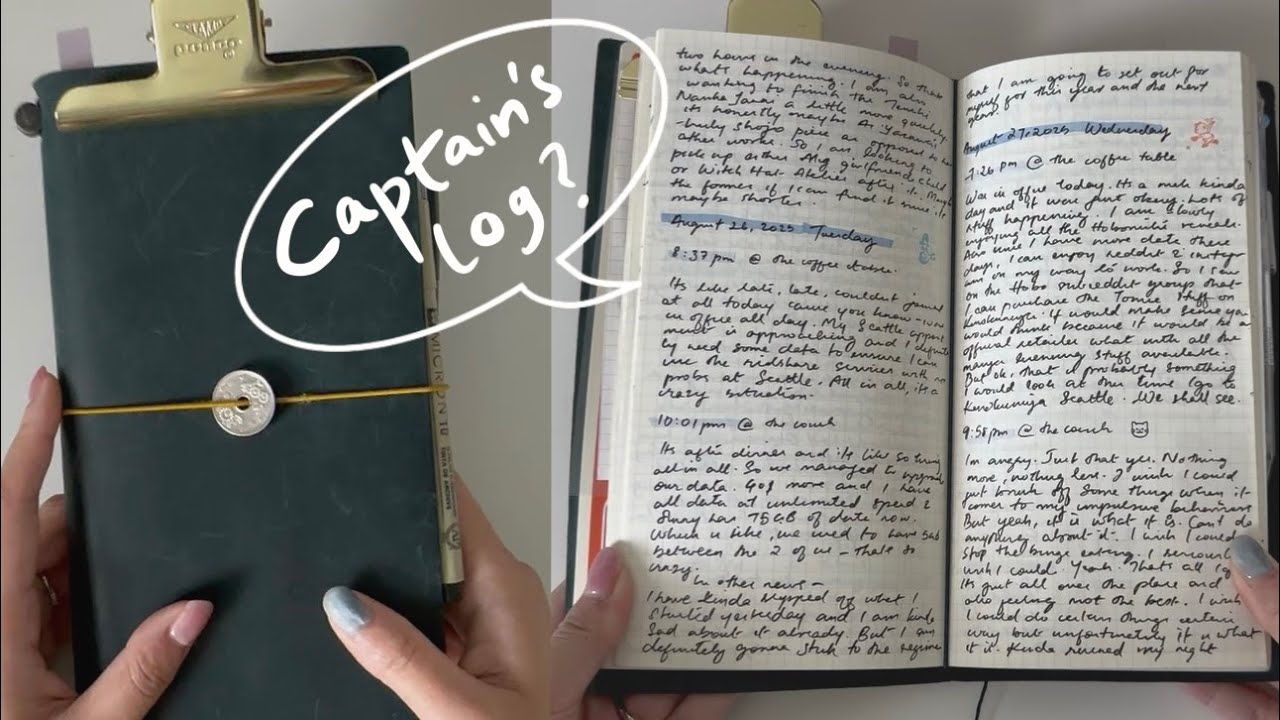 Captain's
log?
two hours in the evening. So thats
what's happening. I am also
wanting to finish the
a little more quickly
its honestly maybe
shojo piece as opposed to her
other works. So I am looking to
pick up either My girlfriend's child
or Witch Hat Atelier after it. Maybe
the former if I can find it since its
maybe shorter.
August 26, 2025 Tuesday
8:37 pm @ the coffee table.
Its like late, late, couldn't journal
at all today cause you know - was
in office all day. My Seattle appoint
ment is approaching and I definite
ly need some data to ensure I can
use the rideshare services with no
probs at Seattle. All in all, its a
crazy situation.
10:01pm @ the couch
Its after dinner and it's like so
all in all. So we managed to upgrade
our data. more and I have
all data at unlimited speed &
Sunny has 75GB of data now.
Which is like, we used to have
between the 2 of us - thats so
crazy.
In other news -
I have kinda slipped off what I
started yesterday and I am kinda
sad about it already. But I am
definitely gonna stick to the regime
that I am going to set out for
myself for this year and the next
year.
August 27, 2025 Wednesday
7:26 pm @ the coffee table
Was in office today. Its a meh kinda
day and it was just okay. Lots of
stuff happening. I am slowly
enjoying all the Hobonichi reveals.
Also since I have more data these
days, I can enjoy reddit & insta
am on my way to work. So I saw
on the Hobo subreddit group that
I can purchase the Tomie stuff on
Kinokuniya. It would make sense you
would think because it would be an
official retailer what with all the
manga stuff available.
But ok, that is probably something
I would look at this time I go to
Kinokuniya Seattle. We shall see.
9:58pm @ the couch
Im angry. Just that yes. Nothing
more, nothing less. I wish I could
just brush off some things when it
comes to my impulsive behaviours
But yeah, it is what it is. Cant do
anything about it. I wish I could
stop the binge eating. I seriously
wish I could. Yeah. Thats all I
Its just all over the place and
also feeling not the best. I wish
I could do certain things certain
way but unfortunately it is what
it is. Kinda ruined my night